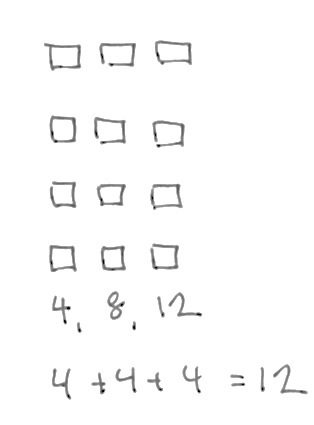 4, 8, 12
4 + 4 + 4 = 12